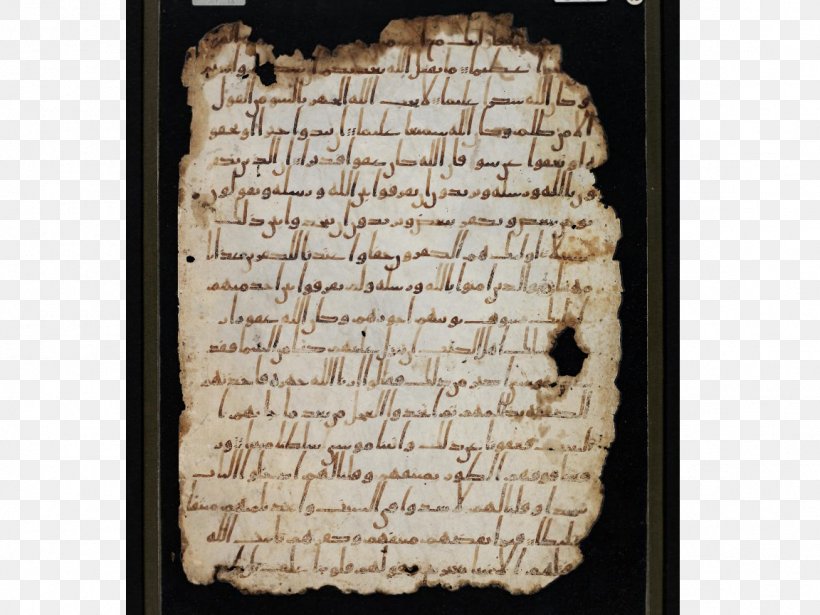 عظيما ما يفعل الله بعذابكم ا
وكان الله شكرا عليما لا يحب الله الجهر بالسو من القول
الا من ظلم وكان الله سميعا عليما ان تبدوا خيرا او تخفو
ه او تعفوا عن سو فان الله كان عفوا قديرا ان الذين يكفر
ون بالله ورسله ويريدون ان يفرقوا بين الله ورسله ويقولون
نومن ببعض ونكفر ببعض ويريدون ان يتخذوا بين ذلك
سبيلا اوليك هم الكفرون حقا واعتدنا للكفرين عذابا
مهينا والذين امنوا بالله ورسله ولم يفرقوا بين احد منهم
اوليك سوف يوتيهم اجورهم وكان الله غفورا ر
يسلك اهل الكتب ان تنزل عليهم كتبا من السما فقد
موسى اكبر من ذلك فقالوا ارنا الله جهرة فاخذتهم
الصعقة بظلمهم ثم اتخذوا العجل من بعد ما جاتهم ا
لبينت فعفونا عن ذلك واتينا موسى سلطنا مبينا ور
فعنا فوقهم الطور بميثقهم وقلنا لهم ادخلوا الباب
سجدا وقلنا لهم لا تعدوا في السبت واخذنا منهم ميثقا
غليظا فبما نقضهم ميثقهم وكفرهم بايت الله
وقتلهم الانبيا بغير حق وقولهم قلوبنا غلف بل